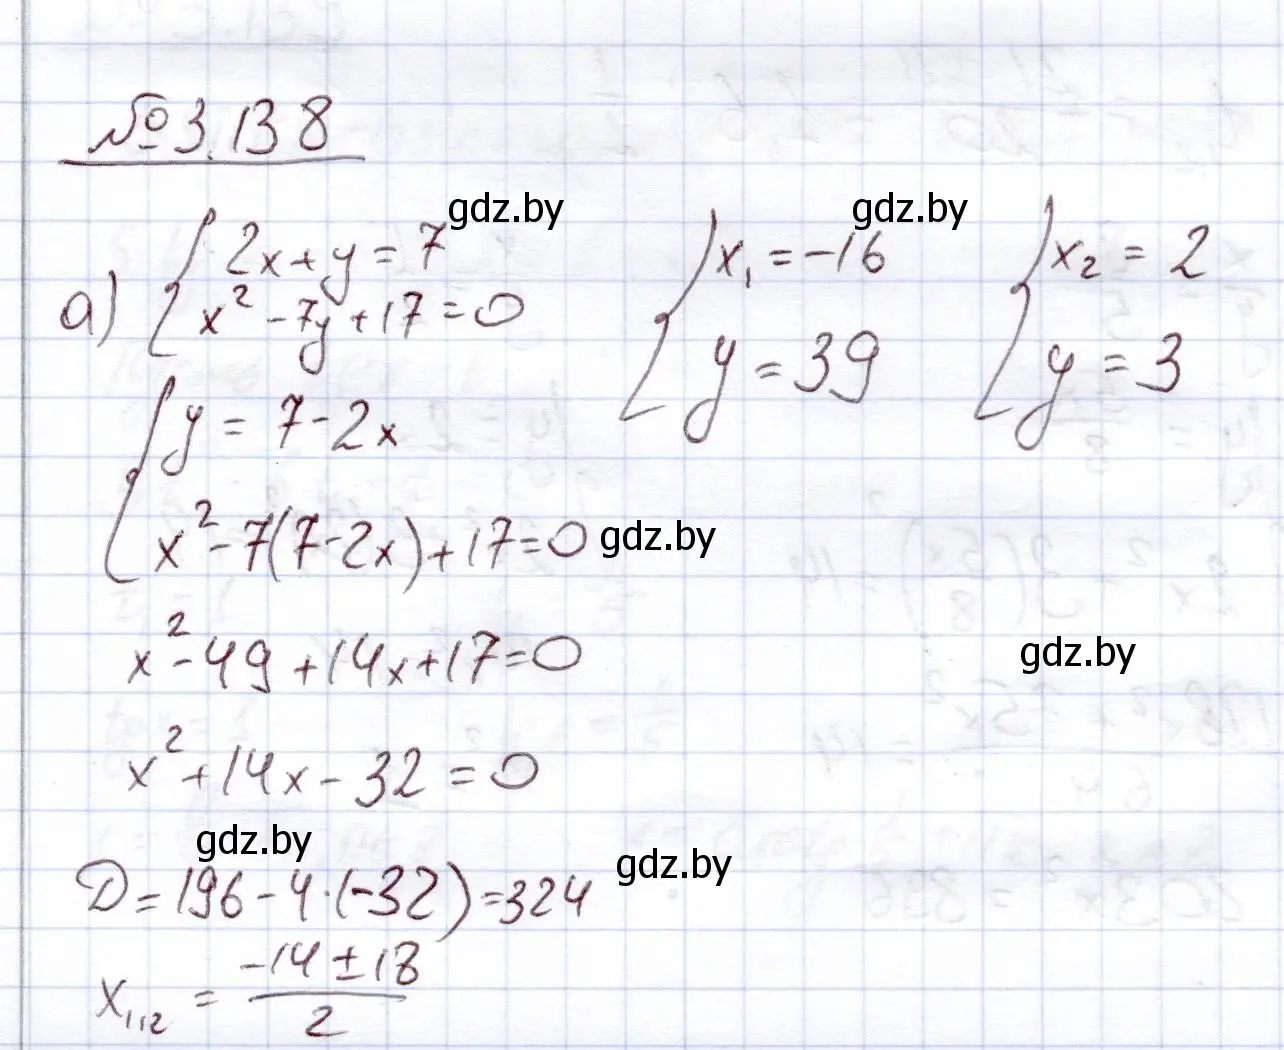 № 3.138
gdz.by
gdz.by
а) { 2x + y = 7
x² - 7y + 17 = 0
{ y = 7 - 2x
x² - 7(7 - 2x) + 17 = 0
gdz.by
x² - 49 + 14x + 17 = 0
x² + 14x - 32 = 0
gdz.by
D = 196 - 4 · (-32) = 324
gdz.by
x₁,₂ = (-14 ± 18) / 2
{ x₁ = -16
y = 39
{ x₂ = 2
y = 3
gdz.by